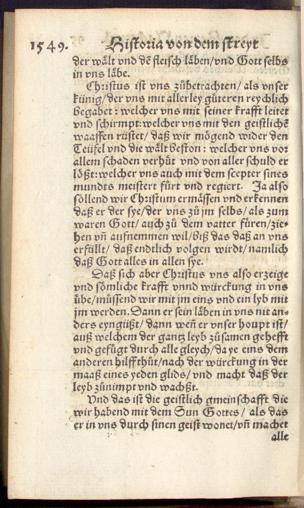 1549. Historia von dem streyt
der wält vnd dẽ fleisch läben/vnd Gott selbs
in vns läbe.
Christus ist vns zůbetrachten/als vnser
künig/der vns mit aller ley güteren reychlich
begabet: welcher vns mit seiner krafft leitet
vnd schirmpt: welcher vns mit den geistlichẽ
waaffen rüstet/daß wir mögend wider den
Teüfel vnd die wält beston: welcher vns vor
allem schaden verhüt vnd von aller schuld er
lößt: welcher vns auch mit dem scepter sines
mundts meistert fürt vnd regiert. Ja also
söllend wir Christum ermässen vnd erkennen
daß er der sye/der vns zů jm selbs/als zum
waren Gott/auch zů dem vatter füren/zie-
hen vñ aufnemmen wil/biß das daß an vns
erfüllt/daß endtlich volgen wirdt/namlich
daß Gott alles in allen sye.
Daß sich aber Christus vns also erzeige
vnd sömliche krafft vnnd würckung in vns
übe/müssend wir mit jm eins vnd ein lyb mit
jm werden. Dann er sein läben in vns nit an-
ders eyngüßt/dann weñ er vnser houpt ist/
auß welchem der gantz leyb zůsamen gehefft
vnd gefügt durch alle gleych/da ye eins dem
anderen hilfft hüt/nach der würckung in der
maaß eines yeden glids/vnd macht daß der
leyb zůnimpt vnd wachßt.
Vnd das ist die geistlich gmeinschafft die
wir habend mit dem Sun Gottes/als das
er in vns durch sinen geist wonet/vñ machet
alle